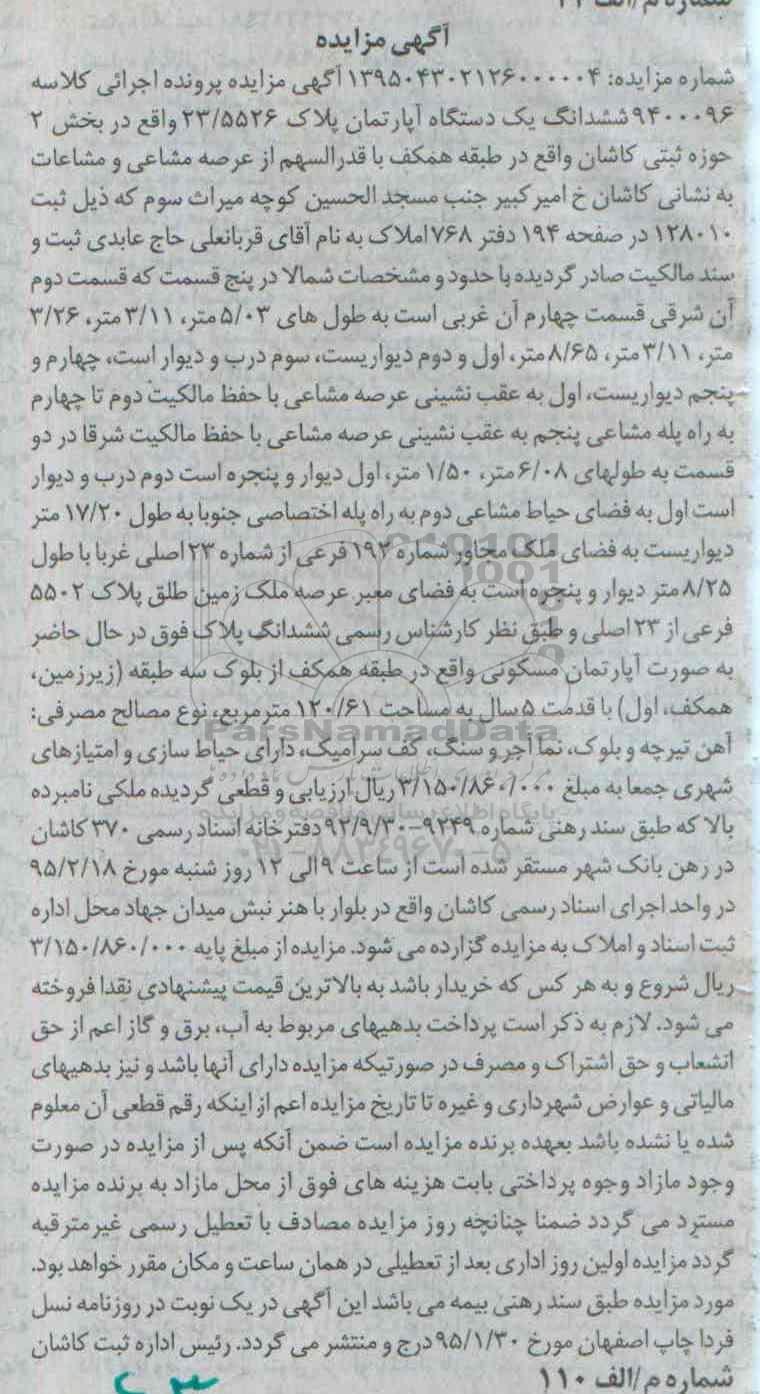 آگهی مزایده
شماره مزایده: ۱۳۹۵۰۴۳۰۲۱۲۶۰۰۰۰۰۴ آگهی مزایده پرونده اجرائی کلاسه
۹۴۰۰۰۹۶ ششدانگ یک دستگاه آپارتمان پلاک ۲۳/۵۵۲۶ واقع در بخش ۲
حوزه ثبتی کاشان واقع در طبقه همکف با قدرالسهم از عرصه مشاعی و مشاعات
به نشانی کاشان خ امیرکبیر جنب مسجد الحسین کوچه میراث سوم که ذیل ثبت
۱۲۸۰۱۰ در صفحه ۱۹۴ دفتر ۷۶۸ املاک به نام آقای قربانعلی حاج عابدی ثبت و
سند مالکیت صادر گردیده با حدود و مشخصات شمالا در پنج قسمت که قسمت دوم
آن شرقی قسمت چهارم آن غربی است به طول های ۵/۰۳ متر، ۳/۱۱ متر، ۳/۲۶
متر، ۳/۱۱ متر، ۸/۶۵ متر، اول و دوم دیواریست، سوم درب و دیوار است، چهارم و
پنجم دیواریست، اول به عقب نشینی عرصه مشاعی با حفظ مالکیت دوم تا چهارم
به راه پله مشاعی پنجم به عقب نشینی عرصه مشاعی با حفظ مالکیت شرقا در دو
قسمت به طولهای ۶/۰۸ متر، ۱/۵۰ متر، اول دیوار و پنجره است دوم درب و دیوار
است اول به فضای حیاط مشاعی دوم به راه پله اختصاصی جنوبا به طول ۱۷/۲۰ متر
دیواریست به فضای ملک مجاور شماره ۱۹۲ فرعی از شماره ۲۳ اصلی غربا با طول
۸/۲۵ متر دیوار و پنجره است به فضای معبر عرصه ملک زمین طلق پلاک ۵۵۰۲
فرعی از ۲۳ اصلی و طبق نظر کارشناس رسمی ششدانگ پلاک فوق در حال حاضر
به صورت آپارتمان مسکونی واقع در طبقه همکف از بلوک سه طبقه (زیرزمین،
همکف، اول) با قدمت ۵ سال به مساحت ۱۲۰/۶۱ مترمربع، نوع مصالح مصرفی:
آهن تیرچه و بلوک، نما آجر و سنگ، کف سرامیک، دارای حیاط سازی و امتیازهای
شهری جمعا به مبلغ ۳/۱۵۰/۸۶۰/۰۰۰ ریال ارزیابی و قطعی گردیده ملکی نامبرده
بالا که طبق سند رهنی شماره ۹۲۴۹-۹۲/۹/۳۰ دفترخانه اسناد رسمی ۳۷۰ کاشان
در رهن بانک شهر مستقر شده است از ساعت ۹ الی ۱۲ روز شنبه مورخ ۹۵/۲/۱۸
در واحد اجرای اسناد رسمی کاشان واقع در بلوار با هنر نبش میدان جهاد محل اداره
ثبت اسناد و املاک به مزایده گزارده می شود. مزایده از مبلغ پایه ۳/۱۵۰/۸۶۰/۰۰۰
ریال شروع و به هر کس که خریدار باشد به بالاترین قیمت پیشنهادی نقدا فروخته
می شود. لازم به ذکر است پرداخت بدهیهای مربوط به آب، برق و گاز اعم از حق
انشعاب و حق اشتراک و مصرف در صورتیکه مزایده دارای آنها باشد و نیز بدهیهای
مالیاتی و عوارض شهرداری و غیره تا تاریخ مزایده اعم از اینکه رقم قطعی آن معلوم
شده یا نشده باشد بعهده برنده مزایده است ضمن آنکه پس از مزایده در صورت
وجود مازاد وجوه پرداختی بابت هزینه های فوق از محل مازاد به برنده مزایده
مسترد می گردد ضمنا چنانچه روز مزایده مصادف با تعطیل رسمی غیرمترقبه
گردد مزایده اولین روز اداری بعد از تعطیلی در همان ساعت و مکان مقرر خواهد بود.
مورد مزایده طبق سند رهنی بیمه می باشد این آگهی در یک نوبت در روزنامه نسل
فردا چاپ اصفهان مورخ ۹۵/۱/۳۰ درج و منتشر می گردد. رئیس اداره ثبت کاشان
شماره م/الف ۱۱۰
ParsNamadData
پایگاه اطلاع رسانی
۰۲۱-۸۸۳۴۹۶۷۰-۵